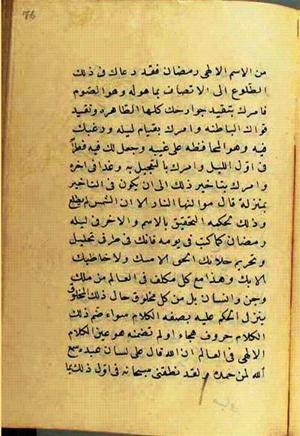 76
من الاسم الالهى رمضان فقد دعاك فى ذلك
الطلوع الى الاتصاف بما هو له وهو الصوم
فامرك بتقييد جوارحك كلها الظاهرة وتقييد
قواك الباطنة وامرك بقيام ليله ورغبك
فيه وهو المحافظة على غيبه وجعل لك فيه فطرا
فى اول الليل وامرك بالتعجيل به وغدا فى اخره
وامرك بتاخير ذلك الى ان يكون فى التاخير
بمنزلة قال هو النهار الا ان الشمس لم تطلع
وذلك لحكمه التحقيق بالاسم والاخر فى ليله
رمضان كما كنت فى يومه فانك فى طرفى تحليل
وتحريم خلاتك الحق الا مسك ولا خاطبك
الا بك وهذا مع كل مكلف فى العالم من ملك
وجن وانسان بل من كل مخلوق حال ذلك المخلوق
ينزل الحكم عليه بصفه الكلام سواء ضم ذلك
الكلام حروف هجاء او لم تضمنه هو عين الكلام
الالهى فى العالم ان الله قال على لسان عبده سمع
الله لمن حمده ولقد نطقنى سبحانه فى اول ذلك بما